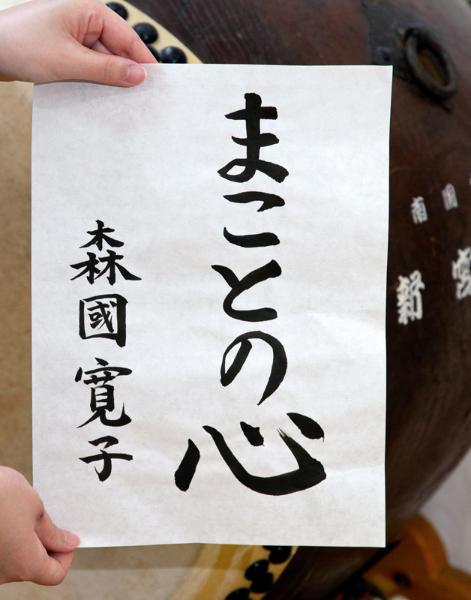 まことの心
森國寛子
南国
新宮